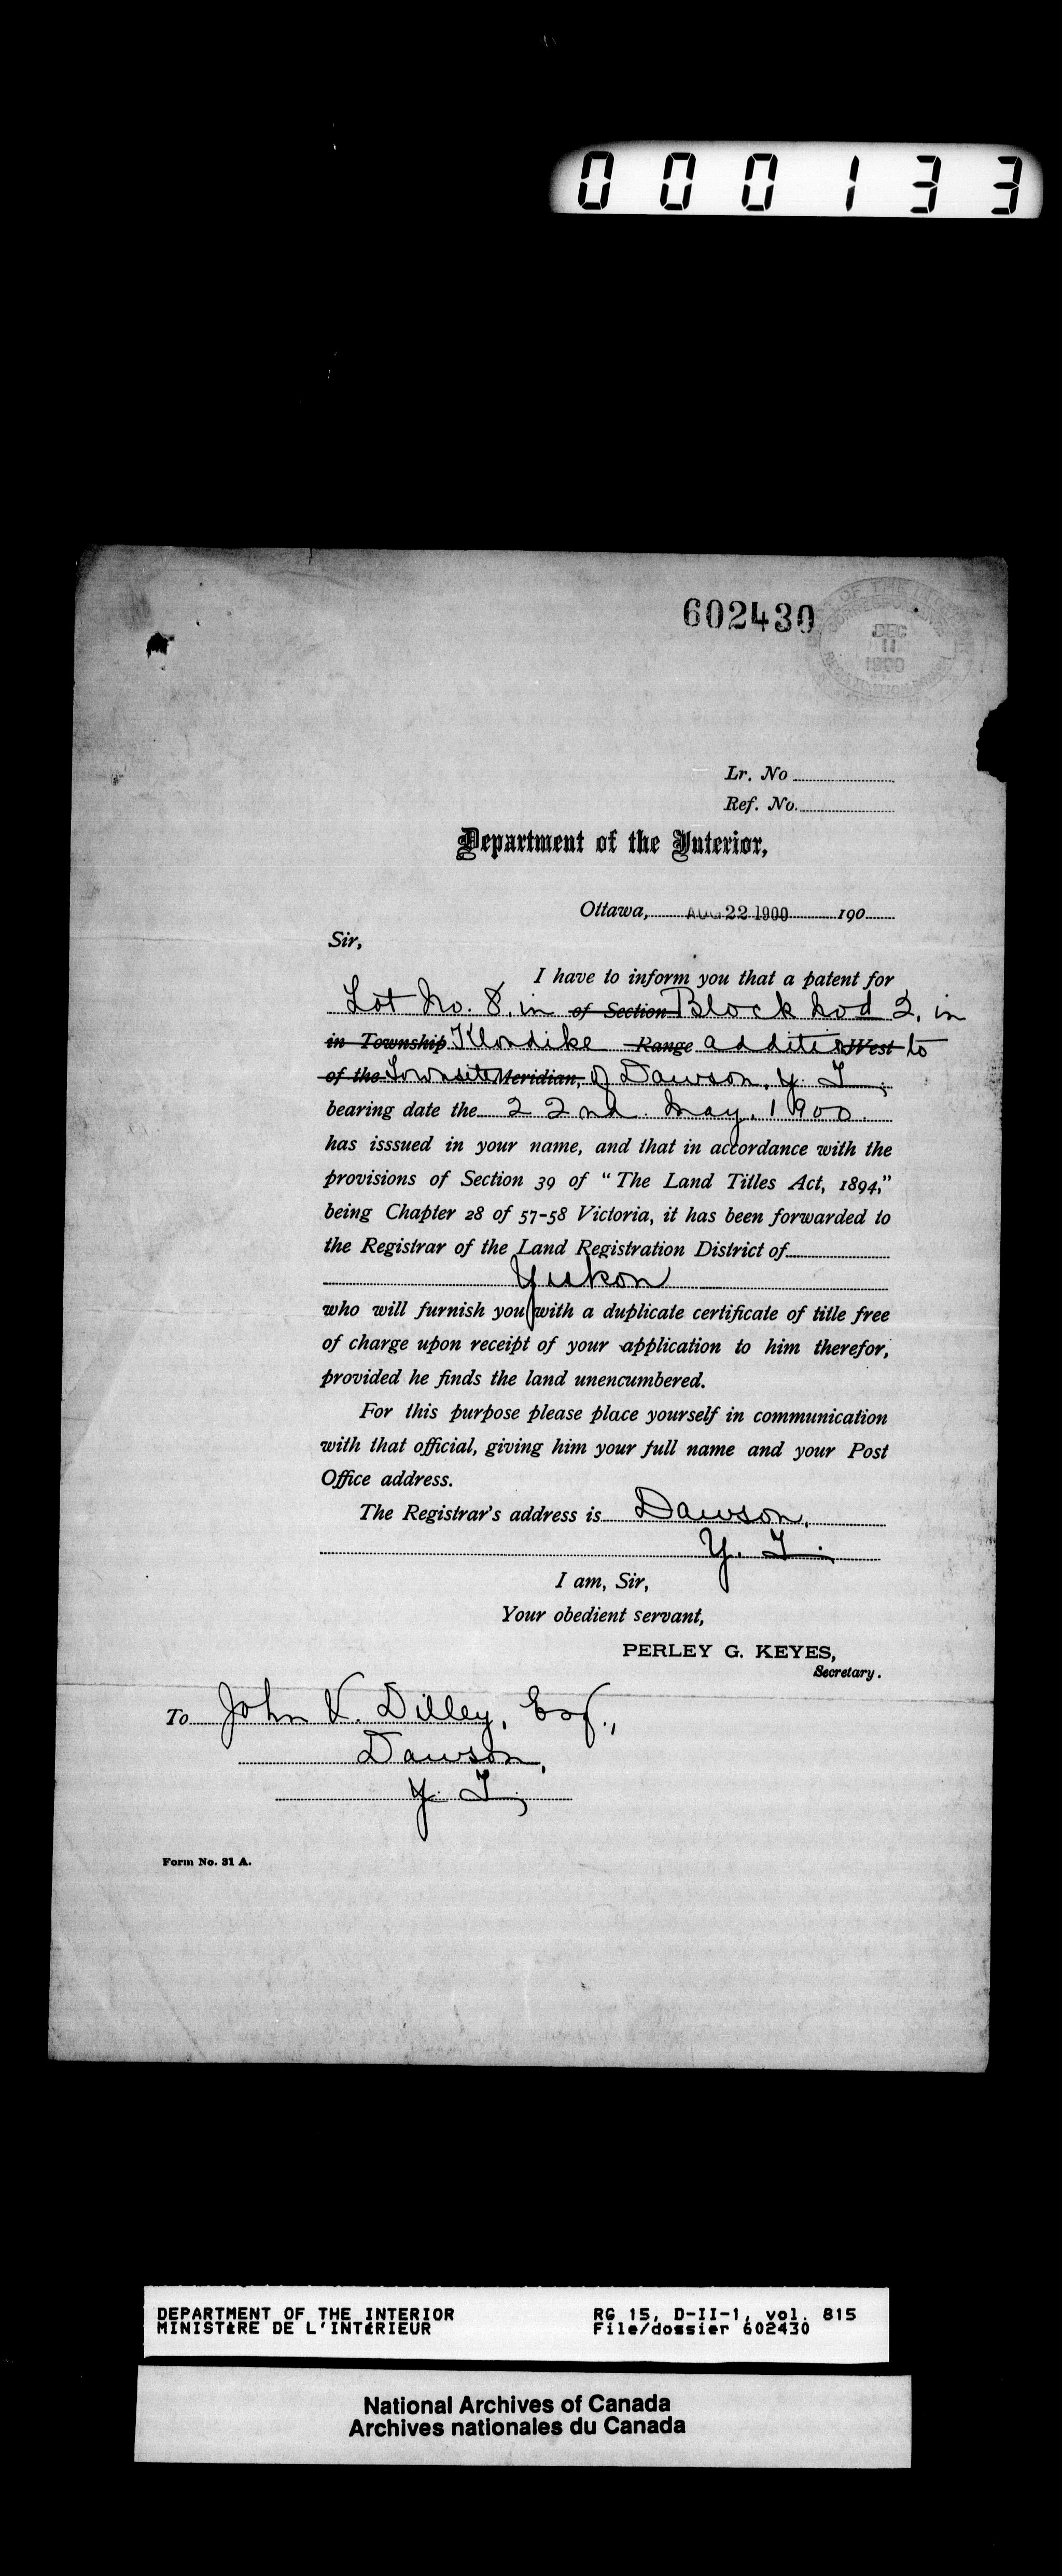 000133
602430
DEC
11
1900
Lr. No
Ref. No.
Department of the Interior,
Ottawa, AUG 22 1900 190
Sir,
I have to inform you that a patent for
Lot No. 8. in of Section Block 2, in
in Township Klondike Range addition West to
of the Townsite Meridian, of Dawson, Y. T.
bearing date the 22nd May, 1900.
has isssued in your name, and that in accordance with the
provisions of Section 39 of "The Land Titles Act, 1894,"
being Chapter 28 of 57-58 Victoria, it has been forwarded to
the Registrar of the Land Registration District of
Yukon
who will furnish you with a duplicate certificate of title free
of charge upon receipt of your application to him therefor,
provided he finds the land unencumbered.
For this purpose please place yourself in communication
with that official, giving him your full name and your Post
Office address.
The Registrar's address is Dawson,
Y. T.
I am, Sir,
Your obedient servant,
PERLEY G. KEYES,
Secretary.
To John V. Dilley, Esq.,
Dawson,
Y. T.
Form No. 31 A.
DEPARTMENT OF THE INTERIOR
MINISTÈRE DE L'INTÉRIEUR
RG 15, D-II-1, vol. 815
File/dossier 602430
National Archives of Canada
Archives nationales du Canada